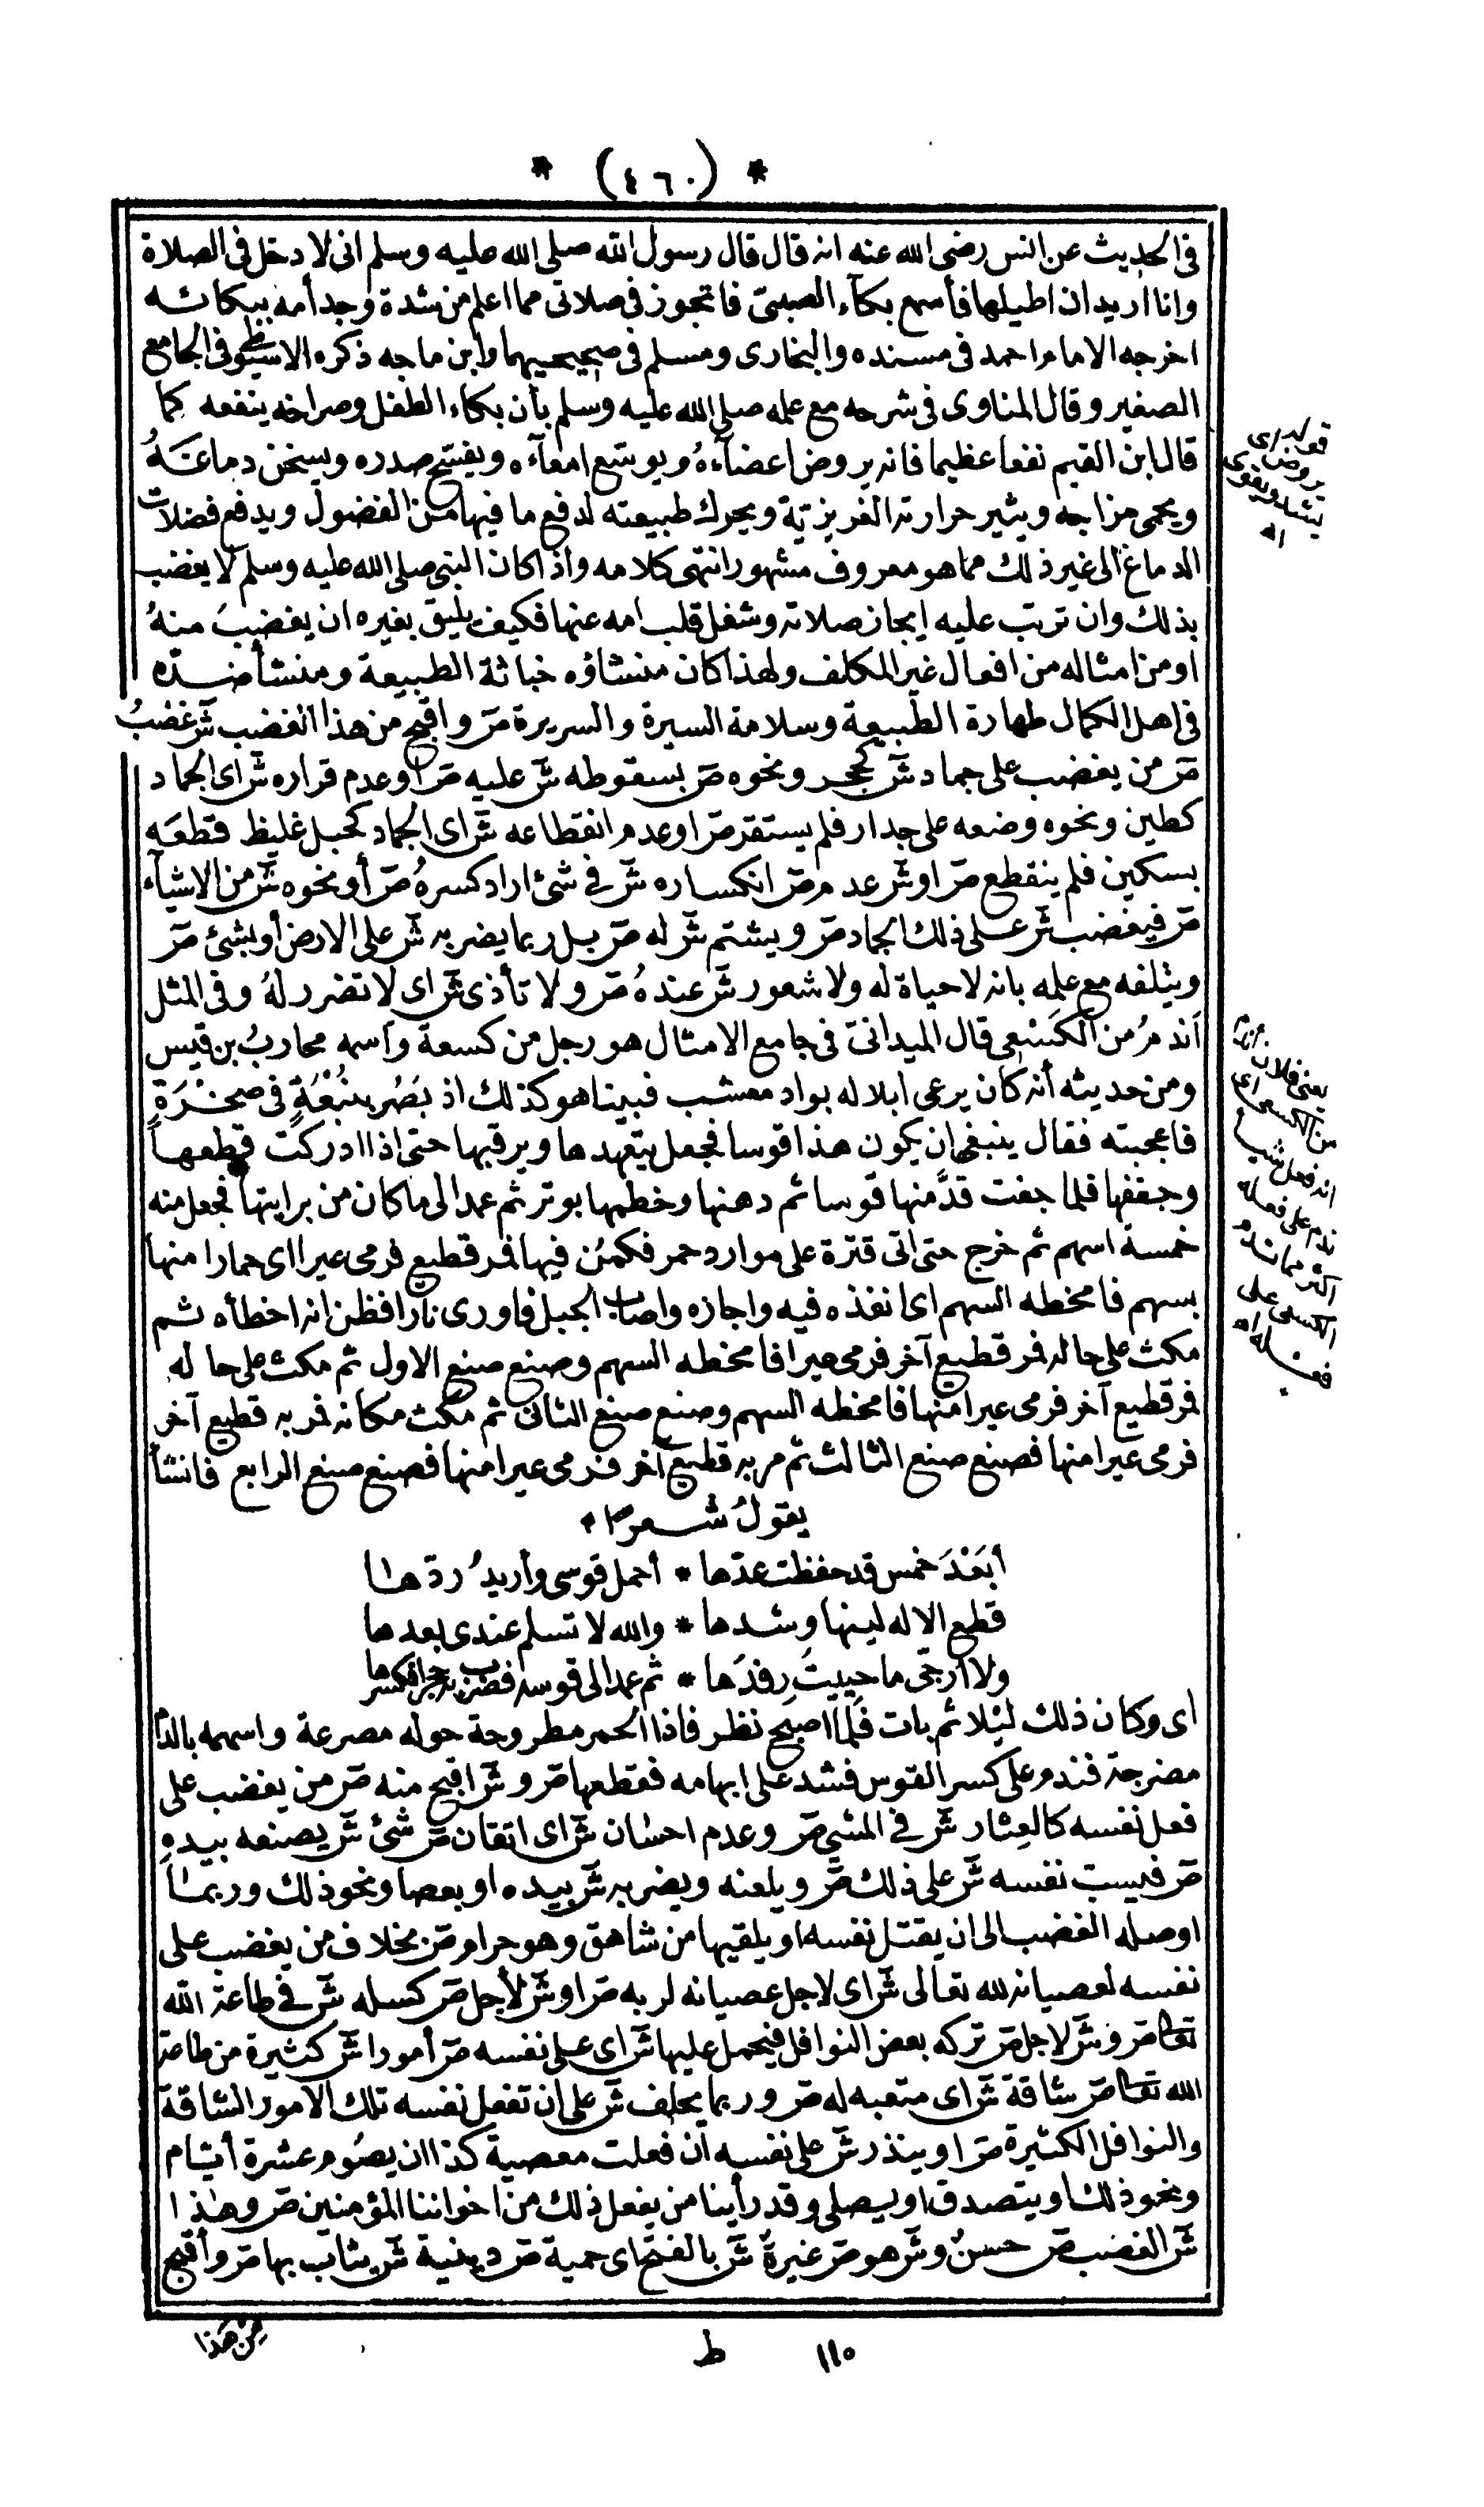 * (٤٦٠) *
في الحديث عن انس رضى الله عنه انه قال قال رسول الله صلى الله عليه وسلم انى لا دخل فى الصلاة
وانا اريد ان اطيلها فأسمع بكآء الصبىّ فاتجوز فى صلاتى مما اعلم من شدة وجد أمه ببكائه
اخرجه الامام احمد فى مسنده والبخارى ومسلم فى صحيحيهما وابن ماجه ذكره الاسيوطى فى الجامع
الصغير وقال المناوى فى شرحه مع علمه صلى الله عليه وسلم بأن بكاء الطفل وصراخه ينفعه كما
قاله ابن القيم نفعا عظيما فانه يروض اعضآءهُ ويوسّع امعآءه ويفسّح صدره ويسخن دماغَهُ
ويحمى مزاجه ويثير حرارته الغريزيّة ويحرك طبيعته لدفع ما فيها من الفضول ويدفع فضلات
الدماغ الى غير ذلك مما هو معروف مشهور انتهى كلامه واذا كان النبى صلى الله عليه وسلم لا يغضب
بذلك وان ترتب عليه ايجاز صلاته وشغل قلب امه عنها فكيف يليق بغيره ان يغضبَ منهُ
او من امثاله من افعال غير المكلف ولهذا كان منشاؤه خباثة الطبيعة ومنشأ ضدّه
فى اهل الكمال طهارة الطبيعة وسلامة السيرة والسريرة صّ واقبح من هذا الغضب شّ غضبُ
صّ من يغضب على جماد شّ كحجر ونحوه صّ بسقوطه شّ عليه صّ او عدم قراره شّ اى الجماد
كطين ونحوه وضعه على جدار فلم يستقر صّ او عدم انقطاعه شّ اى الجماد كحبل غليظ قطعَه
بسكين فلم ينقطع صّ او شّ عدم صّ انكساره شّ في شئ اراد كسرهُ صّ أو نحوه شّ من الاشيآء
صّ فيغضب شّ على ذلك الجماد صّ ويشتم شّ له صّ بل ربما يضربه شّ على الارض أو بشئ صّ
ويتلفه مع علمه بانه لا حياة له ولا شعور شّ عندهُ صّ ولا تأذى شّ اى لا تضرر لهُ وفى المثل
أندمُ من الكُسَعى قال الميدانىّ فى جامع الامثال هو رجل من كسعة وآسمه محاربُ بن قيس
ومن حديثه أنه كان يرعى ابلا له بواد معشب فبينا هو كذلك اذ بَصُر بنُبْعَةٍ فى صخْرَةٍ
فاعجبته فقال ينبغى ان يكون هذا قوسا فجعل يتعهدها ويرقبها حتى اذا ادركت قطعهاً
وجففها فلما جفت قدَّ منها قوسا ثم دهنها وخطمها بوتر ثم عمد الى ما كان من برايتها فجعل منه
خمسة اسهم ثم خرج حتى اتى قترة على موارد حمر فكمُن فيها فمر قطيع فرمى عيرا اى حمارا منها
بسهم فامخطه السهم اى انفذه فيه واجازه واصاب الجبل فاورى نارا فظن انه اخطأه ثم
مكث على حاله فمر قطيع آخر فرمى عيرا فامخطه السهم وصنع صنع الاول ثم مكث على حاله
فمر قطيع آخر فرمى عيرا منها فامخطه السهم وصنع صنع الثانى ثم مكث مكانه فمر به قطيع آخر
فرمى عيرا منها فصنع صنع الثالث ثم مر به قطيع آخر فرمى عيرا منها فصنع صنع الرابع فانشأ
يقولُ شعر
أبَعْدَ خمس قد حفظت عدّها * أحمل قوسى وأريدُ ردّها
قطع الاله لينها وشدها * والله لا تسلم عندى بعدها
ولا أرجّى ما حييتُ رفدَها * ثم عمد الى قوسه فضرب به حجرا فكسرها
اى وكان ذلك ليلا ثم بات فلما اصبح نظر فاذا الحمر مطروحة حوله مصرعة واسهمه بالدم
مضرجة فندم على كسر القوس فشد على ابهامه فقطعها صّ و شّ اقبح منه صّ من يغضب على
فعل نفسه كالعِثار شّ في المشى صّ وعدم احسان شّ اى اتقان صّ شئ شّ يصنعه بيدهِ
صّ فيسب نفسه شّ على ذلك صّ ويلعنه ويضربه شّ بيده او بعصا ونحو ذلك وربما
اوصله الغضب الى ان يقتل نفسه او يلقيها من شاهق وهو حرام صّ بخلاف من يغضب على
نفسه لعصيانه لله تعالى شّ اى لاجل عصيانه لربه صّ او شّ لأجل صّ كسله شّ في طاعة الله
تعالى صّ و شّ لاجل صّ تركه بعض النوافل فيحمل عليها شّ اى على نفسه صّ أمورا شّ كثيرة من طاعة
الله تعالى صّ شاقة شّ اى متعبه له صّ وربما يحلف شّ على ان تفعل نفسه تلك الامور الشاقة
والنوافل الكثيرة صّ او ينذر شّ على نفسه ان فعلت معصية كذا ان يصُوم عشرة أيّام
ونحو ذلك او يتصدق او يصلى وقد رأينا من يفعل ذلك من اخواننا المؤمنين صّ وهذا
شّ الغضب صّ حسنٌ و شّ هو صّ غيرةٌ شّ بالفتح اى حمية صّ دينية شّ يثاب بها صّ وأقبح
من هذا
١١٥ ط
قوله يروض اى
يعنى فلان
من الكسعى اى